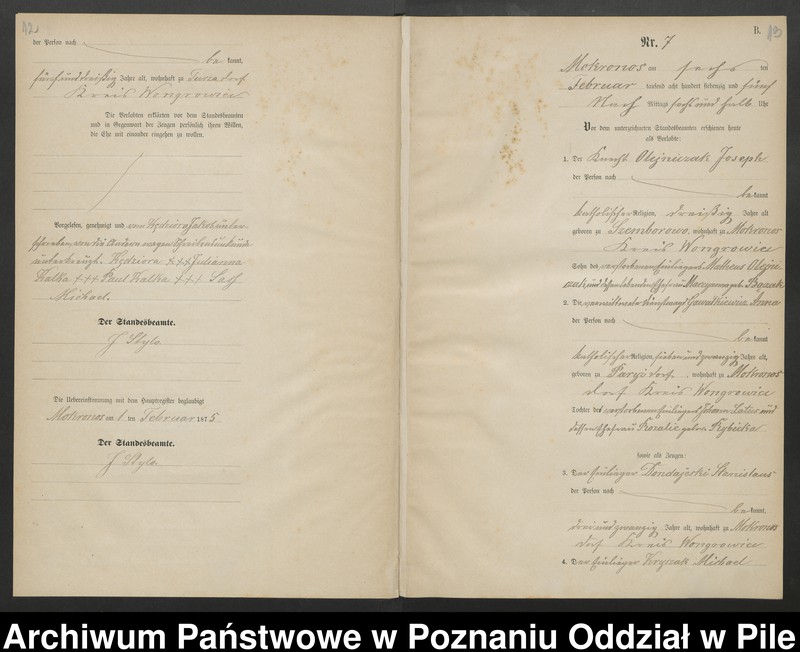 12
der Person nach
be kannt,
fünf und dreißig Jahre alt, wohnhaft zu Turza dorf
Kreis Wongrowiec
Die Verlobten erklärten vor dem Standesbeamten
und in Gegenwart der Zeugen persönlich ihren Willen,
die Ehe mit einander eingehen zu wollen.
Vorgelesen, genehmigt und von Kędziora Jakob unter-
schrieben, von die Andern wegen Schreibensunkunde
unterkreuzt. Kędziora +++ Julianna
Kalka +++ Paul Kalka +++
Michael.
Der Standesbeamte.
J Stylo
Die Uebereinstimmung mit dem Hauptregister beglaubigt
Mokronos am 1 ten Februar 1875
Der Standesbeamte.
J Stylo
B. 13
Nr. 7
Mokronos am sechs ten
Februar tausend acht hundert siebenzig und fünf
Nach Mittags sechs und halb Uhr
Vor dem unterzeichneten Standesbeamten erschienen heute
als Verlobte:
1. Der Knecht Olejniczak Joseph
der Person nach
be kannt
katholischer Religion, dreißig Jahre alt
geboren zu Szemborowo, wohnhaft zu Mokronos
Kreis Wongrowiec
Sohn des verstorbenen Einliegers Matheus Olejni
czak, und dessen lebenden Ehefrau Maryanna geb.
2. Die verwittwete Gawałkiewicz Anna
der Person nach
be kannt
katholischer Religion, sieben und zwanzig Jahre alt,
geboren zu dorf, wohnhaft zu Mokronos
dorf Kreis Wongrowiec
Tochter des verstorbenen Einliegers Johann und
dessen Ehefrau Rosalie geborn Rybicka
sowie als Zeugen:
3. Der Einlieger Dondajeski Stanislaus
der Person nach
be kannt,
drei und zwanzig Jahre alt, wohnhaft zu Mokronos
dorf Kreis Wongrowiec
4. Der Einlieger Michael
Archiwum Państwowe w Poznaniu Oddział w Pile